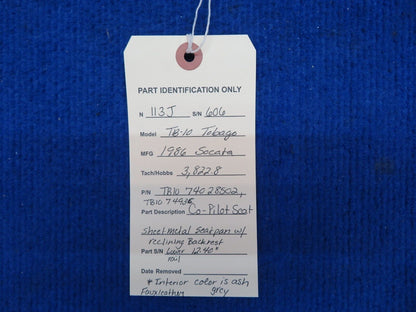 PART IDENTIFICATION ONLY
N 113J S/N 606
Model TB-10 Tobago
MFG 1986 Socata
Tach/Hobbs 3,822.8
P/N TB10 74028502,
TB10 74
Part Description Co-Pilot Seat
Sheetmetal Seatpan w/
reclining Backrest
Part S/N Lower 12.40"
rail
Date Removed
* Interior color is ash
Faux leather grey